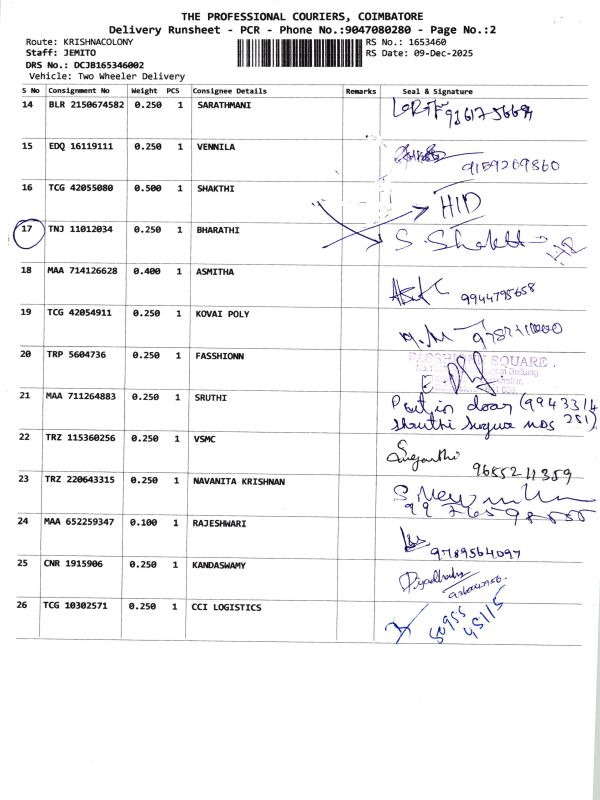 THE PROFESSIONAL COURIERS, COIMBATORE
Delivery Runsheet - PCR - Phone No.:9047080280 - Page No.:2
Route: KRISHNACOLONY RS No.: 1653460
Staff: JEMITO RS Date: 09-Dec-2025
DRS No.: DCJB165346002
Vehicle: Two Wheeler Delivery
S No Consignment No Weight PCS Consignee Details Remarks Seal & Signature
14 BLR 2150674582 0.250 1 SARATHMANI
15 EDQ 16119111 0.250 1 VENNILA 9159269860
16 TCG 42055080 0.500 1 SHAKTHI HID
17 TNJ 11012034 0.250 1 BHARATHI S. Shakti
18 MAA 714126628 0.400 1 ASMITHA 9944795658
19 TCG 42054911 0.250 1 KOVAI POLY
20 TRP 5604736 0.250 1 FASSHIONN SQUARE
21 MAA 711264883 0.250 1 SRUTHI Put in door (9943314
251)
22 TRZ 115360256 0.250 1 VSMC Suganthi
9655211359
23 TRZ 220643315 0.250 1 NAVANITA KRISHNAN
24 MAA 652259347 0.100 1 RAJESHWARI
9789564097
25 CNR 1915906 0.250 1 KANDASWAMY
26 TCG 10302571 0.250 1 CCI LOGISTICS 50955
45115